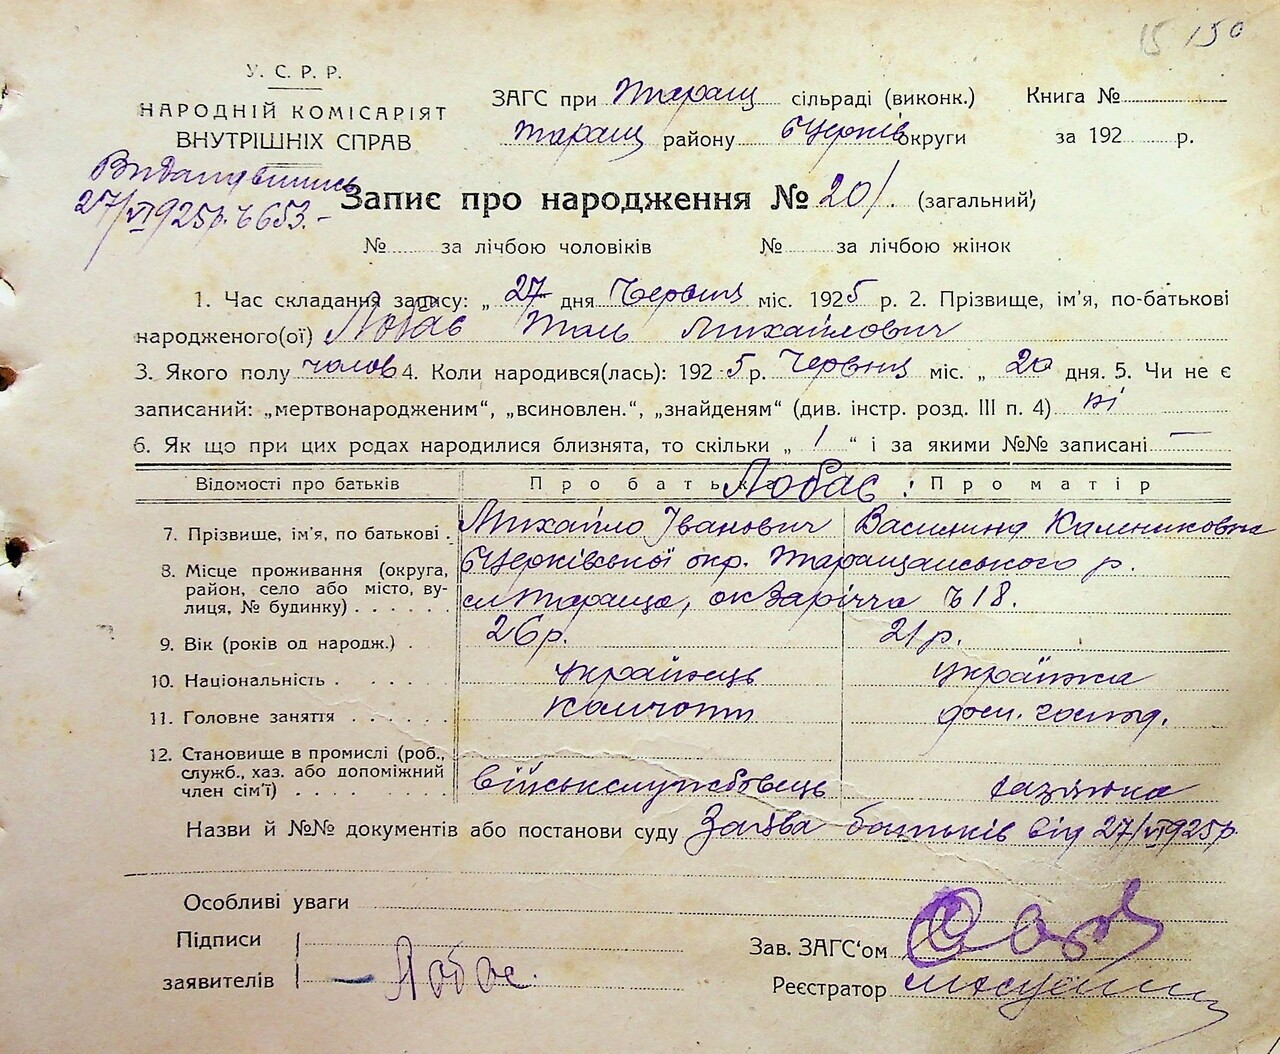 15 150
У. С. Р. Р.
НАРОДНІЙ КОМІСАРІЯТ
ВНУТРІШНІХ СПРАВ
ЗАГС при Таращ сільраді (виконк.) Книга №
Таращ району БЦерків округи за 192 р.
27/VI 925р. 653.-
Запис про народження № 201. (загальний)
№ за лічбою чоловіків № за лічбою жінок
1. Час складання запису: „ 27 дня Червня міс. 1925 р. 2. Прізвище, ім'я, по-батькові
народженого(ої) Лобас Михайлович
3. Якого полу чолов 4. Коли народився(лась): 1925 р. Червня міс. „ 20 дня. 5. Чи не є
записаний: „мертвонародженим“, „всиновлен.“, „знайденям“ (див. інстр. розд. III п. 4) ні
6. Як що при цих родах народилися близнята, то скільки „ 1 “ і за якими №№ записані —
Відомості про батьків Про батька Лобас Про матір
7. Прізвище, ім'я, по батькові . Михайло Іванович Василина Калениковна
8. Місце проживання (округа, район, село або місто, вулиця, № будинку) . . . . . БЦерківської окр. Таращанського р.
м Тараща, ок Заріччя № 18.
9. Вік (років од народж.) . 26 р. 21 р.
10. Національність . . . . . українець українка
11. Головне заняття . . . . . . дом. господ.
12. Становище в промислі (роб., служб., хаз. або допоміжний член сім'ї) . . . . . . військслужбовець хазяйка
Назви й №№ документів або постанови суду Заява батьків від 27/VI 925р
Особливі уваги
Підписи
заявителів Лобас.
Зав. ЗАГС'ом
Реєстратор